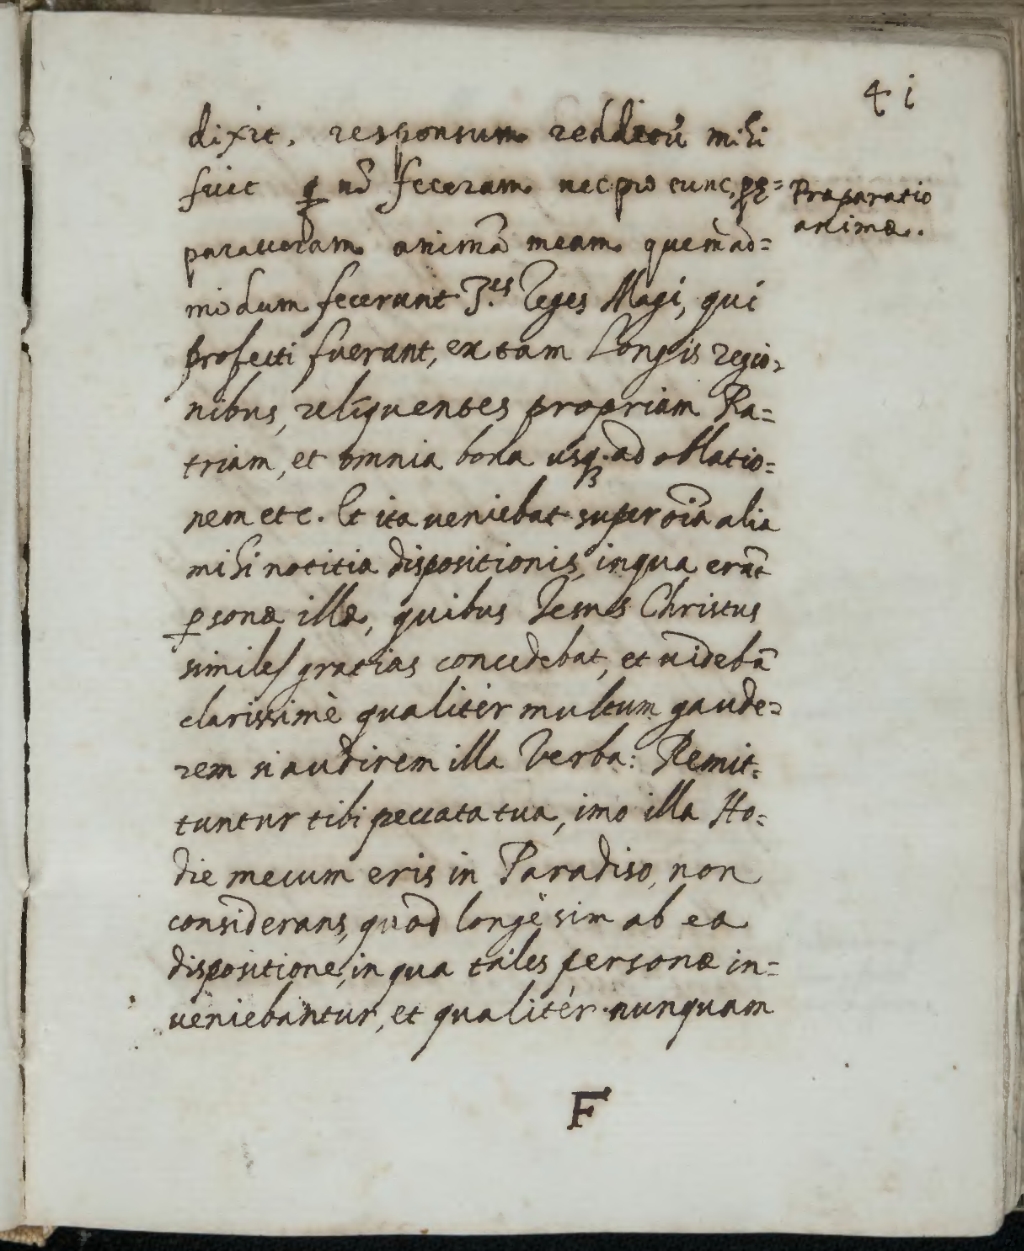 41
dixit, responsum redditū mihi
fuit q nō feceram nec pro tunc, prę=
Præparatio
animæ.
paraveram animā meam quem̄ad=
modum fecerunt 3.es Reges Magi, qui
profecti fuerant, ex tam Longis regio=
nibus, reliquentes propriam Pa=
triam, et omnia bona usq. ad oblatio=
nem etc. Et ita veniebat super oīa alia
mihi notitia dispositionis, in qua erāt
psonæ illæ, quibus Jesus Christus
similes gratias concedebat, et videbā
clarissimè qualitèr multum gaude=
rem si audirem illa Verba: Remit=
tuntur tibi peccata tua, imo illa Ho=
die mecum eris in Paradiso, non
considerans, quod longè sim ab ea
dispositione, in qua tales personæ in=
veniebantur, et qualitèr nunquam
F